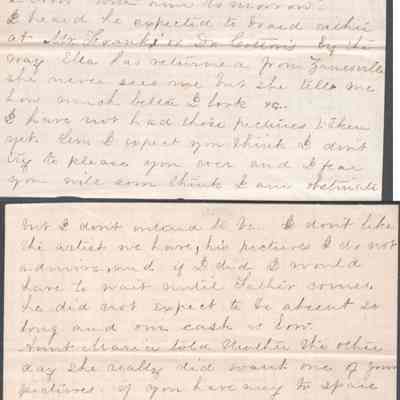 I heard he expected to board either
at Mr Frank's or Dr Cotton's By the
way Ella has returned from Zanesville
she never sees me but she tells me
how much better I look &c.
I have not had those pictures taken
yet. Lew I expect you think I don't
try to please you ever and I fear
you will soon think I am obstinate
but I don't intend to be. I don't like
the artist we have, his pictures I do not
admire, and if I did I would
have to wait until Father comes,
he did not expect to be absent so
long and our cash is low.
Aunt Maria told Mother the other
day she really did want one of your
pictures if you have any to spare